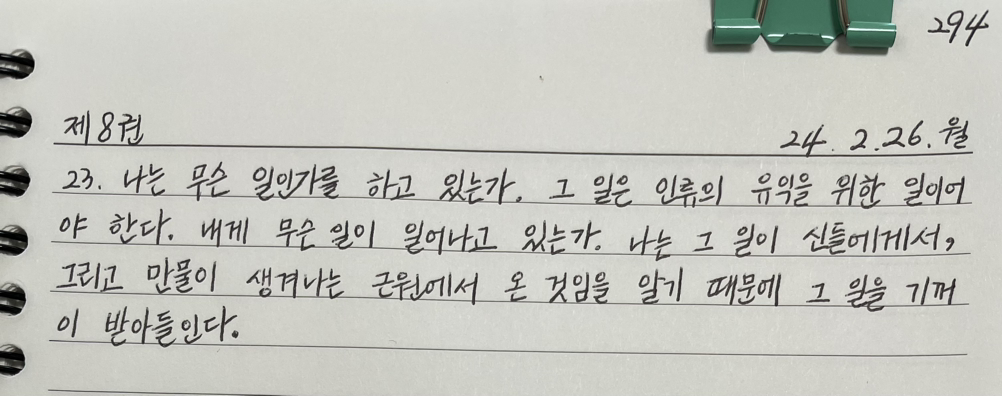 294
제8권
24. 2. 26. 월
23. 나는 무슨 일인가를 하고 있는가. 그 일은 인류의 유익을 위한 일이어
야 한다. 내게 무슨 일이 일어나고 있는가. 나는 그 일이 신들에게서,
그리고 만물이 생겨나는 근원에서 온 것임을 알기 때문에 그 일을 기꺼
이 받아들인다.